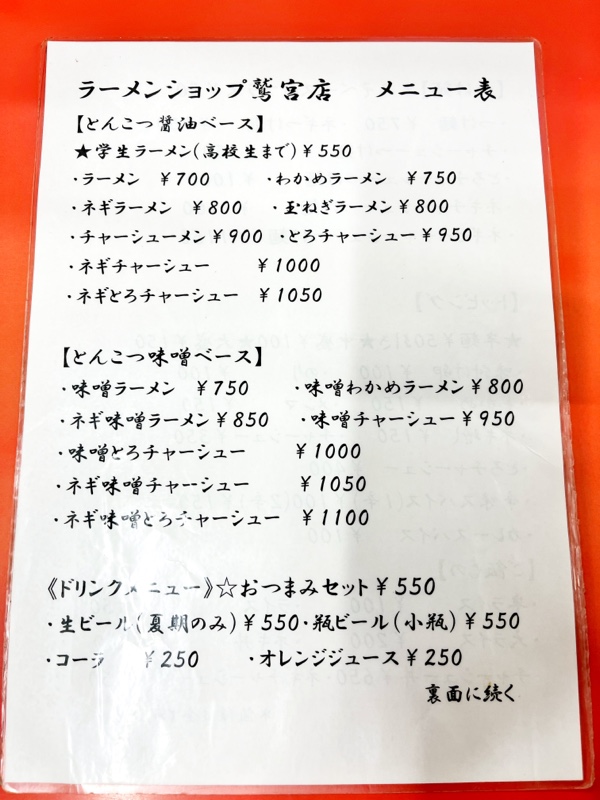 ラーメンショップ鷲宮店 メニュー表
【とんこつ醤油ベース】
★学生ラーメン(高校生まで)￥550
・ラーメン ￥700 ・わかめラーメン ￥750
・ネギラーメン ￥800 ・玉ねぎラーメン￥800
・チャーシューメン￥900 ・とろチャーシュー￥950
・ネギチャーシュー ￥1000
・ネギとろチャーシュー ￥1050
【とんこつ味噌ベース】
・味噌ラーメン ￥750 ・味噌わかめラーメン￥800
・ネギ味噌ラーメン￥850 ・味噌チャーシュー￥950
・味噌とろチャーシュー ￥1000
・ネギ味噌チャーシュー ￥1050
・ネギ味噌とろチャーシュー ￥1100
《ドリンクメニュー》☆おつまみセット￥550
・生ビール(夏期のみ)￥550・瓶ビール(小瓶)￥550
・コーラ ￥250 ・オレンジジュース￥250
裏面に続く